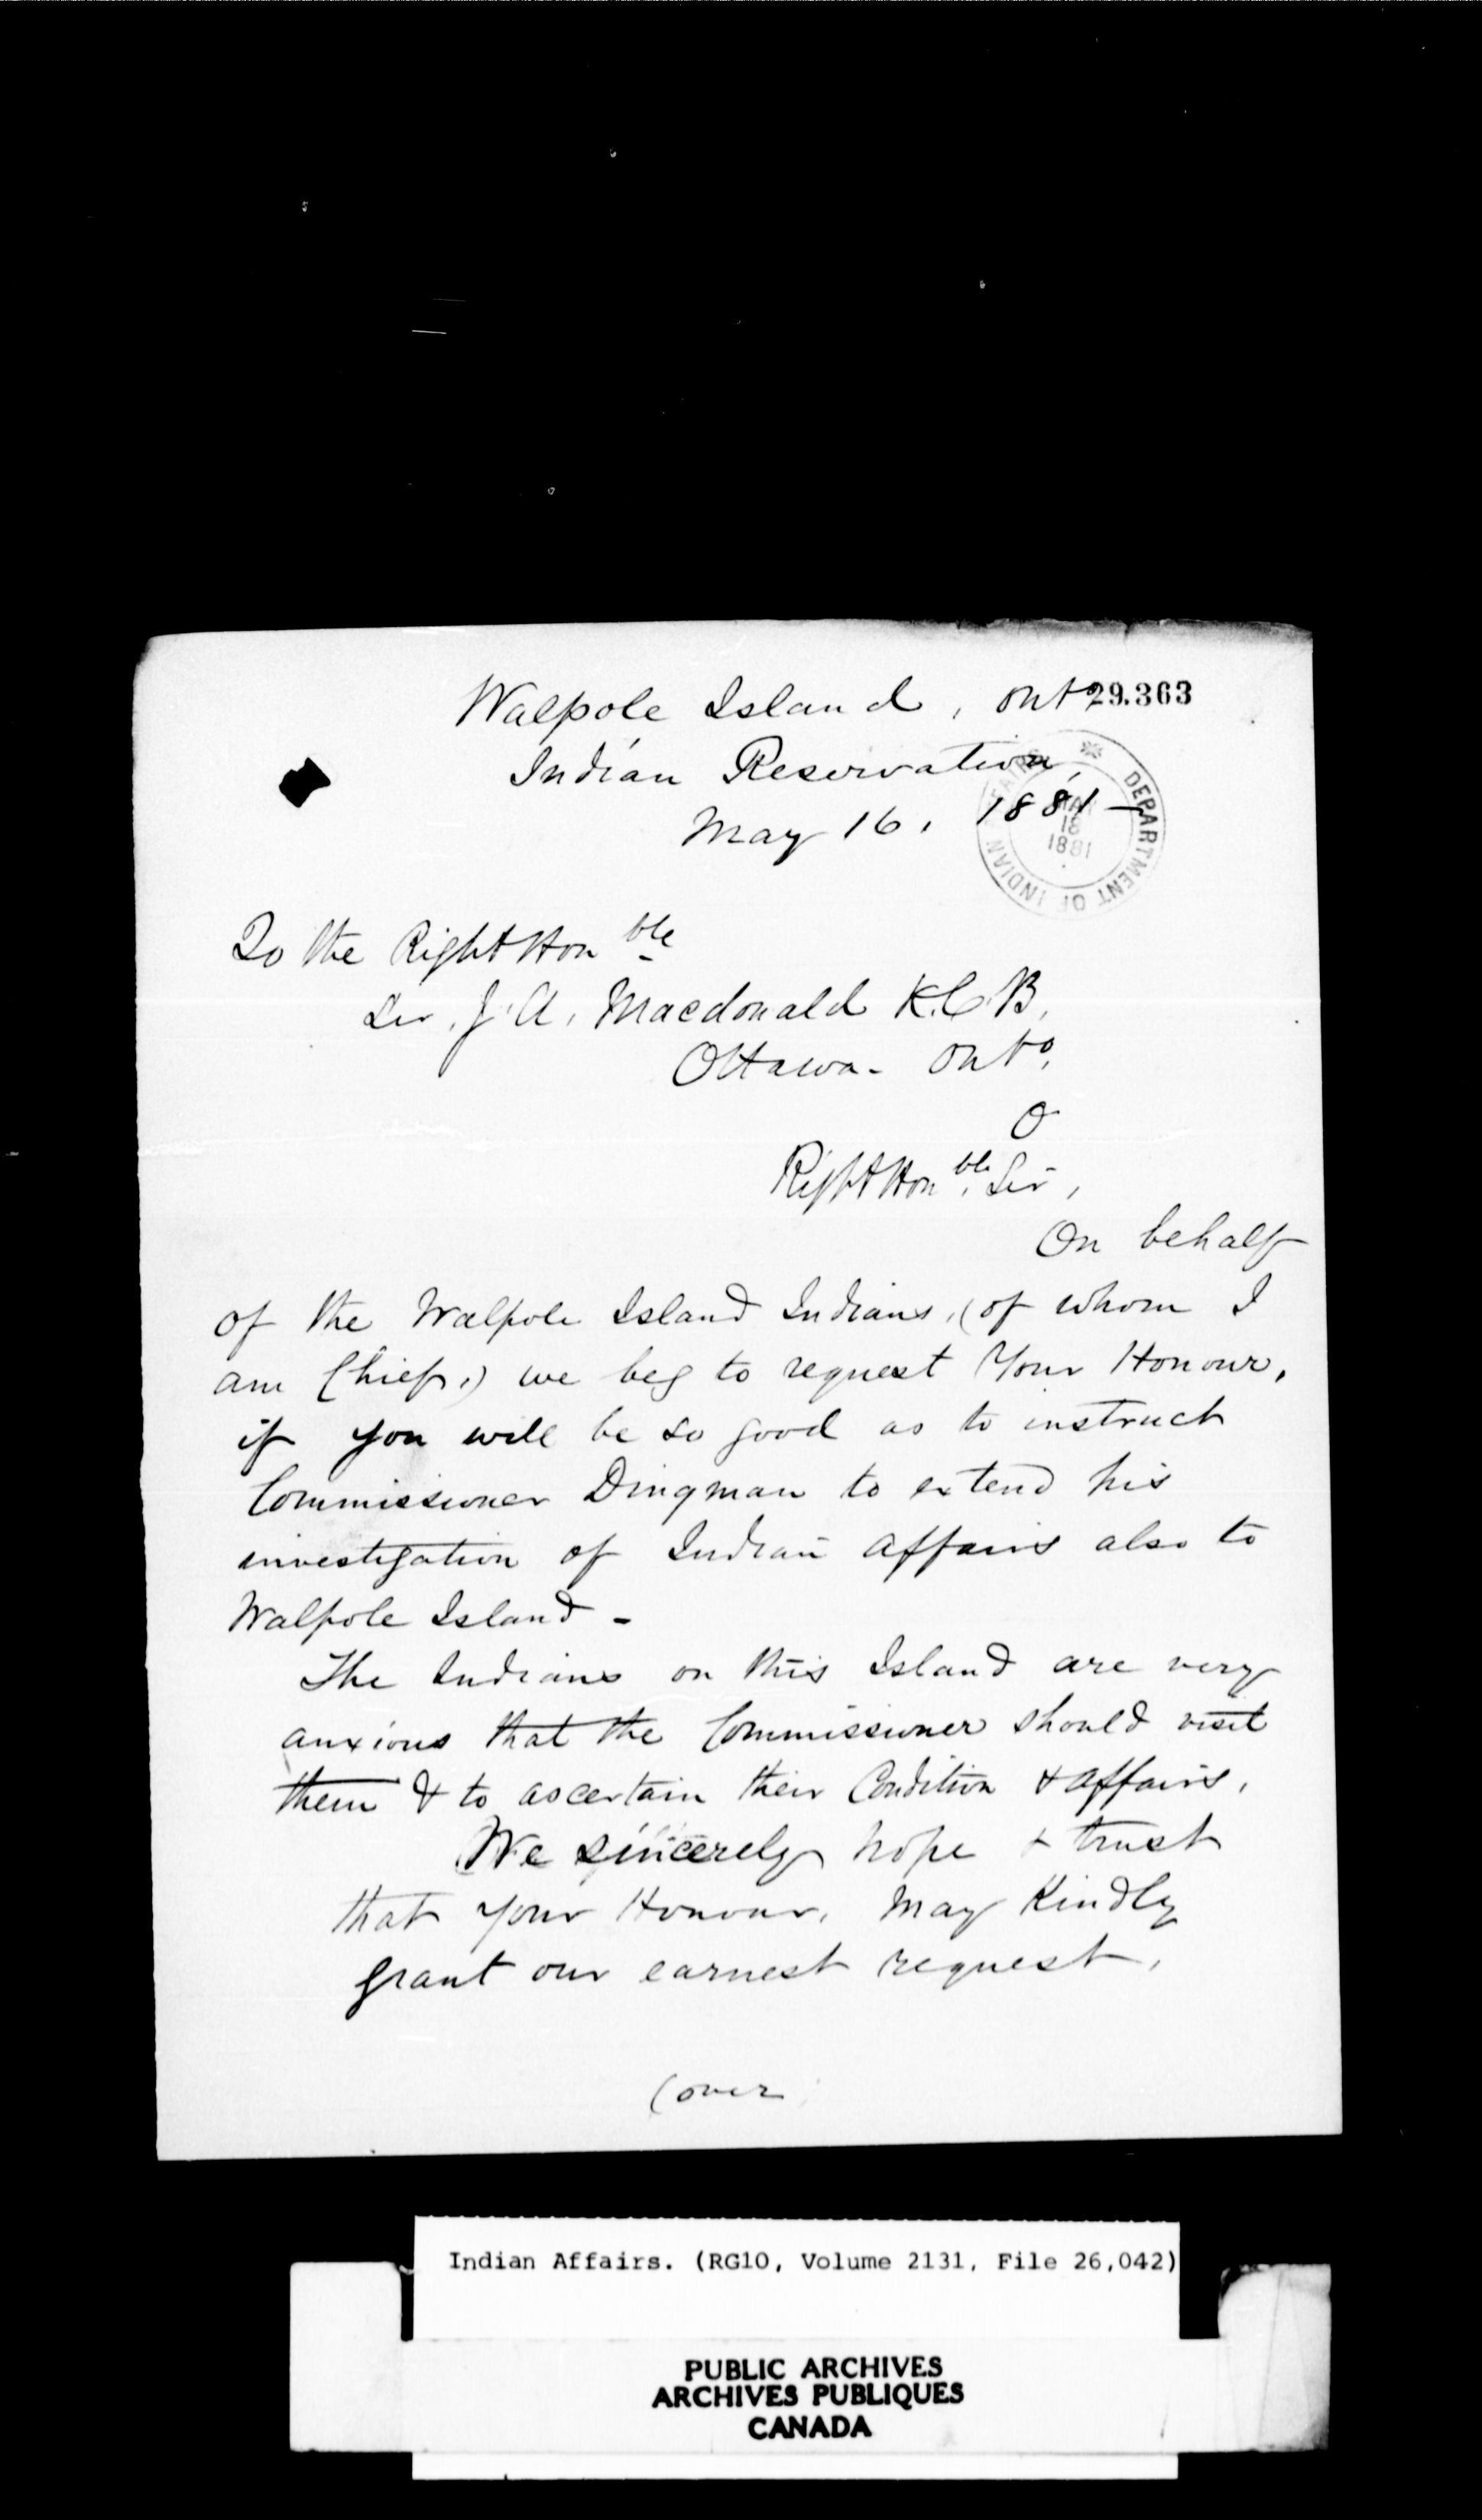 Walpole Island, Ont^o
29.363
Indian Reservation,
May 16, 1881 —
DEPARTMENT OF INDIAN AFFAIRS
MAY
18
1881
To the Right Hon^ble
Sir J. A. Macdonald K.C.B.
Ottawa - Ont^o,
Right Hon^ble, Sir,
On behalf
of the Walpole Island Indians, (of whom I
am Chief,) we beg to request Your Honour,
if you will be so good as to instruct
Commissioner Dingman to extend his
investigation of Indian affairs also to
Walpole Island -
The Indians on this Island are very
anxious that the Commissioner should visit
them & to ascertain their Condition & affairs.
We sincerely hope & trust
that your Honour, may Kindly
grant our earnest request,
(over
Indian Affairs. (RG10, Volume 2131, File 26,042)
PUBLIC ARCHIVES
ARCHIVES PUBLIQUES
CANADA